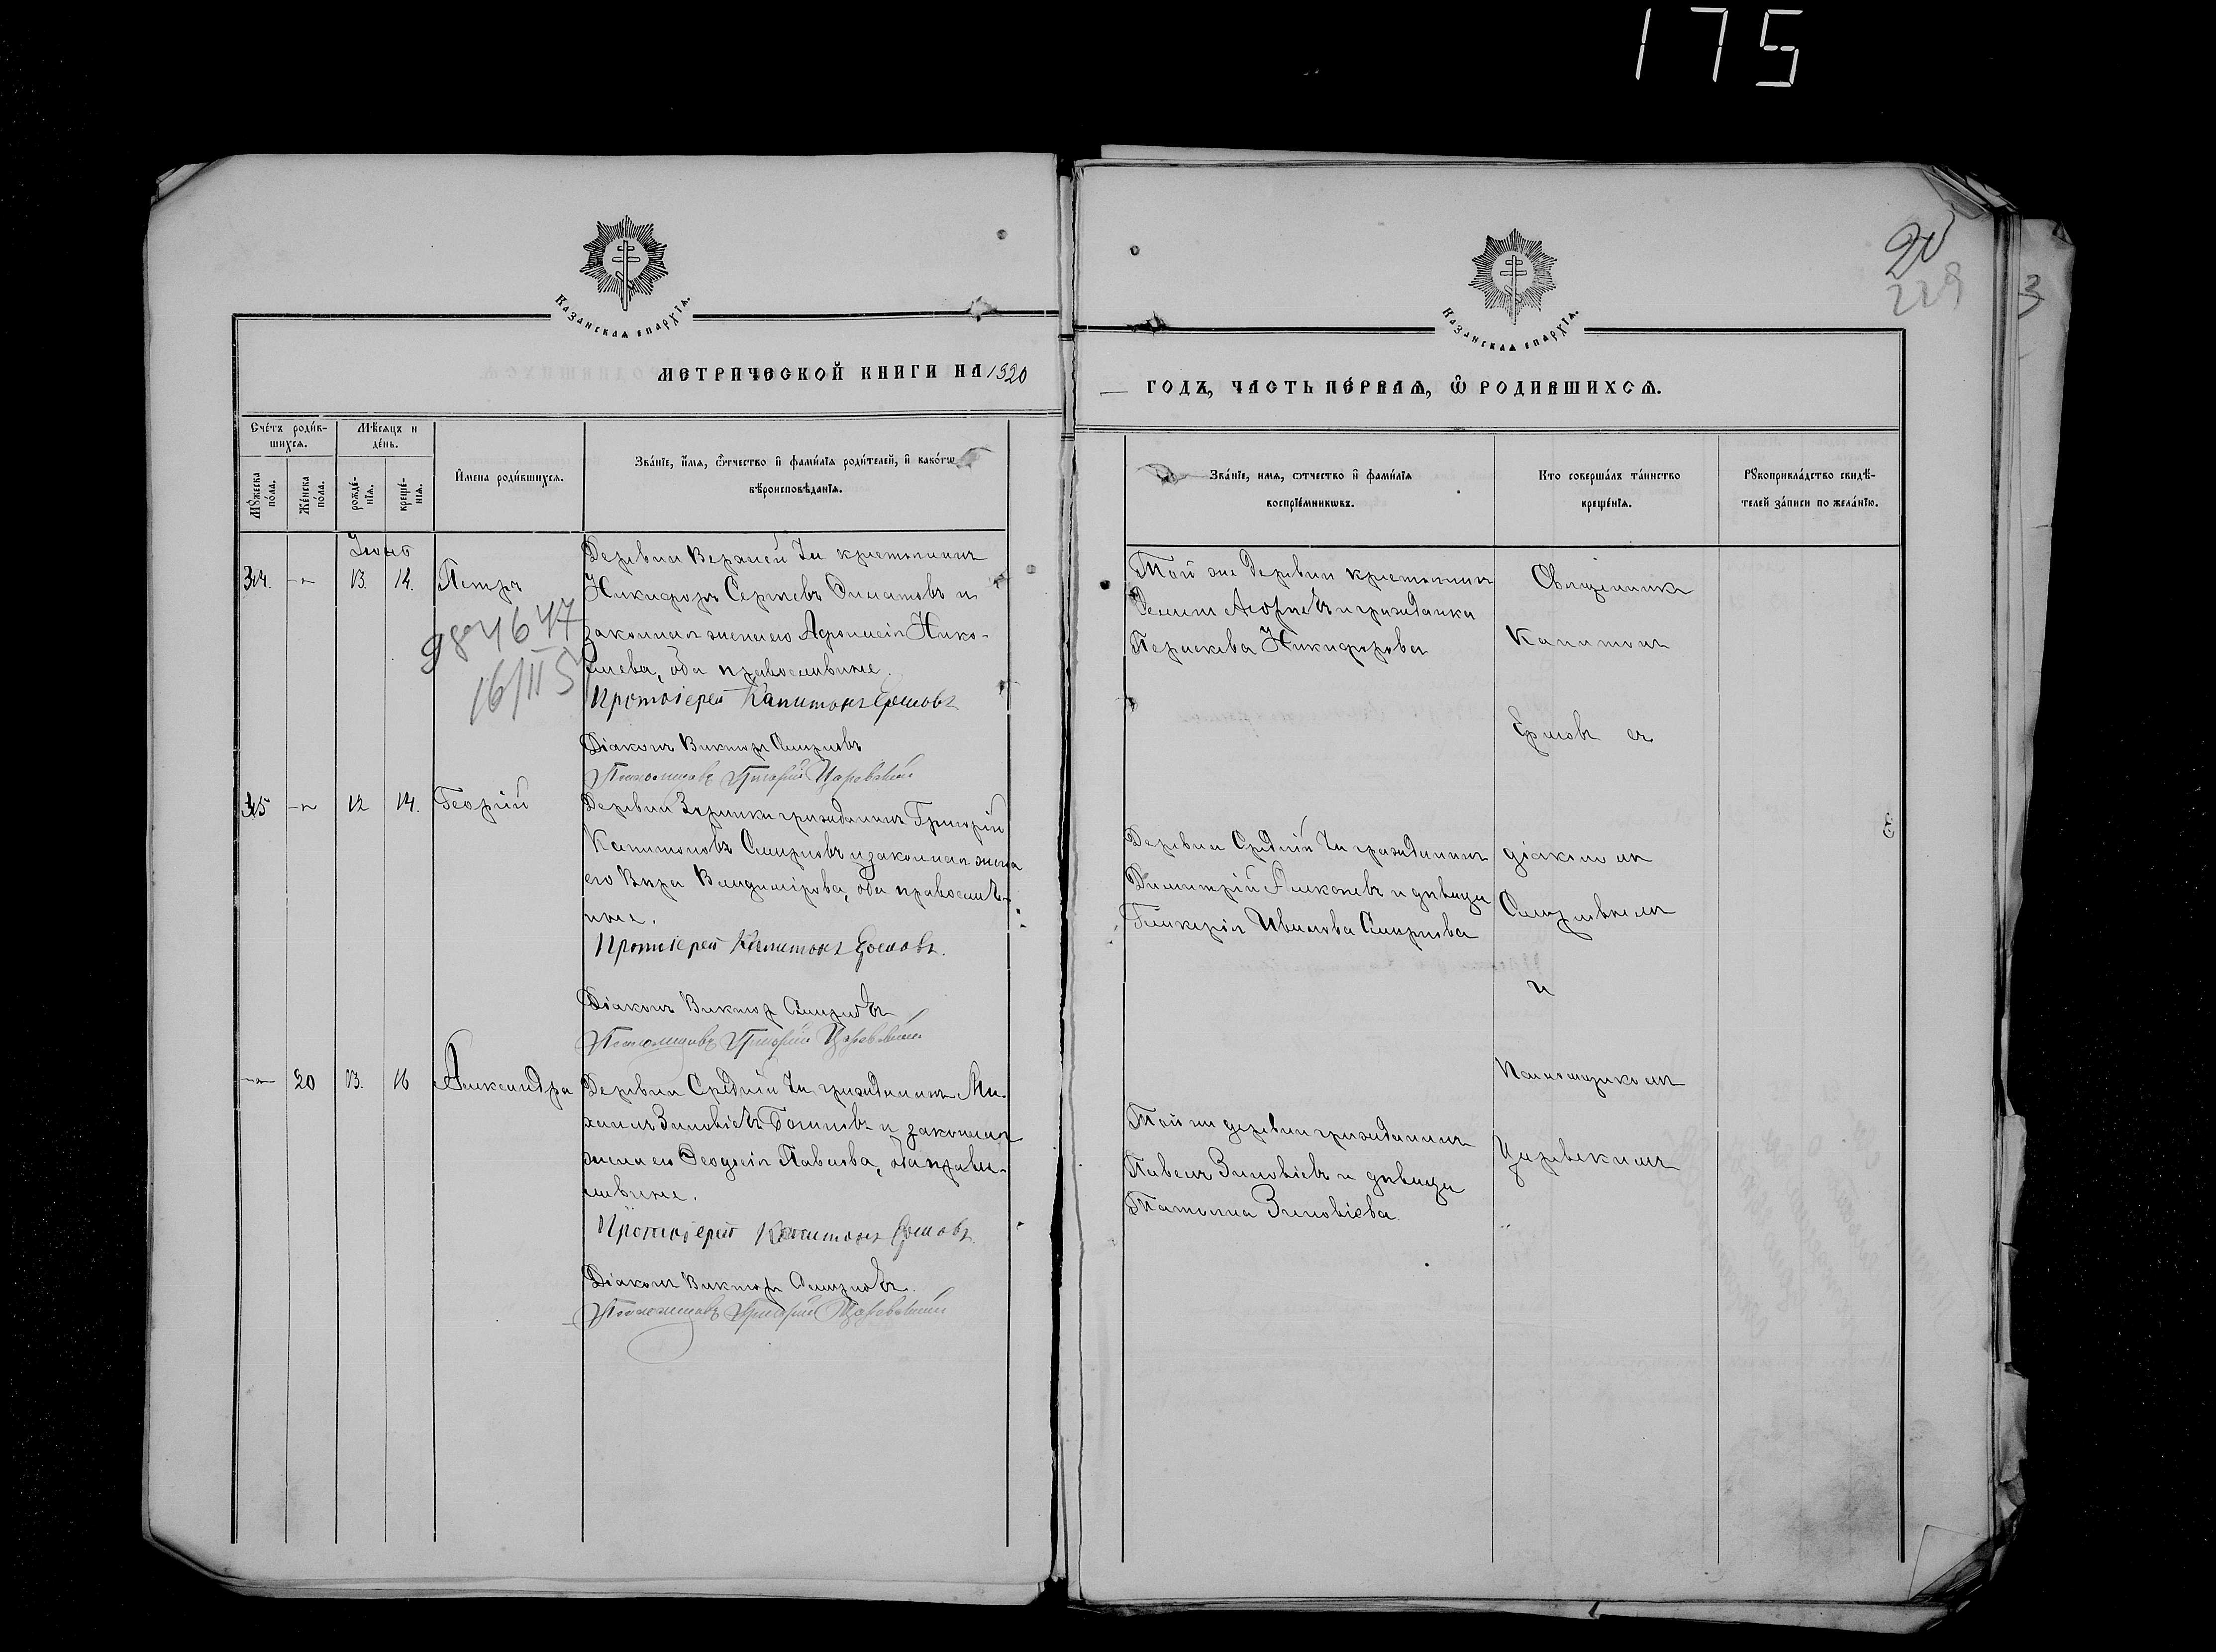 175
20
229
3
Казанская епархїѧ.
Казанская епархїѧ.
МЕТРИЧЕСКОЙ КНИГИ НА 1920
ГОДЪ, ЧАСТЬ ПЕ́РВАѦ, Ѿ РОДИВШИХСѦ.
Сче́тъ роди́в-
шихсѧ.
Мѣ́сѧцъ и
де́нь.
Мꙋ́жеска
по́ла.
Же́нска
по́ла.
рожде́-
нїѧ.
креще́-
нїѧ.
И҆мена роди́вшихсѧ.
Зва́нїе, и҆́мѧ, ѻ҆́тчество и҆ фами́лїѧ роди́телей, и҆ како́гѡ
вѣроисповѣ́данїѧ.
Зва́нїе, имѧ, ѻтчество и҆ фами́лїѧ
воспрїе́мникѡвъ.
Кто соверша́лъ та́инство
креще́нїѧ.
Рꙋкоприкла́дство свидѣ́-
телей за́писи по жела́нїю.
34. 13. 14. Петръ
Деревни Верхней крестьянинъ
Никифоръ Сергѣевъ и
законная жена его Афонасія Нико-
лаева, оба православные.
Протоіерей Капитонъ Ершовъ
Діаконъ Викторъ Смирновъ
Псаломщикъ Григорій Царевскій
Той же деревни крестьянинъ
и гражданка
Пераскева Никифорова
Священникъ
Капитонъ
Ершовъ съ
35 12 14. Георгій
Деревни гражданинъ Григорій
Капитоновъ Смирновъ и законная жена
его Вѣра Владимірова, оба православ-
ные.
Протоіерей Капитонъ Ершовъ.
Діаконъ Викторъ Смирновъ
Псаломщикъ Григорій Царевскій
Деревни Средній гражданинъ
Димитрій и дѣвица
Гликерія Иванова Смирнова
діакономъ
Смирновымъ
и
20 13. 16 Александра
Деревни Средній гражданинъ Ми-
хаилъ Зиновіевъ и законная
жена его Ѳеодосія Павлова, оба право-
славные.
Протоіерей Капитонъ Ершовъ
Діаконъ Викторъ Смирновъ.
Псаломщикъ Григорій Царевскій
Той же деревни гражданинъ
Павелъ Зиновіевъ и дѣвица
Татьяна Зиновіева.
Псаломщикомъ
Царевскимъ